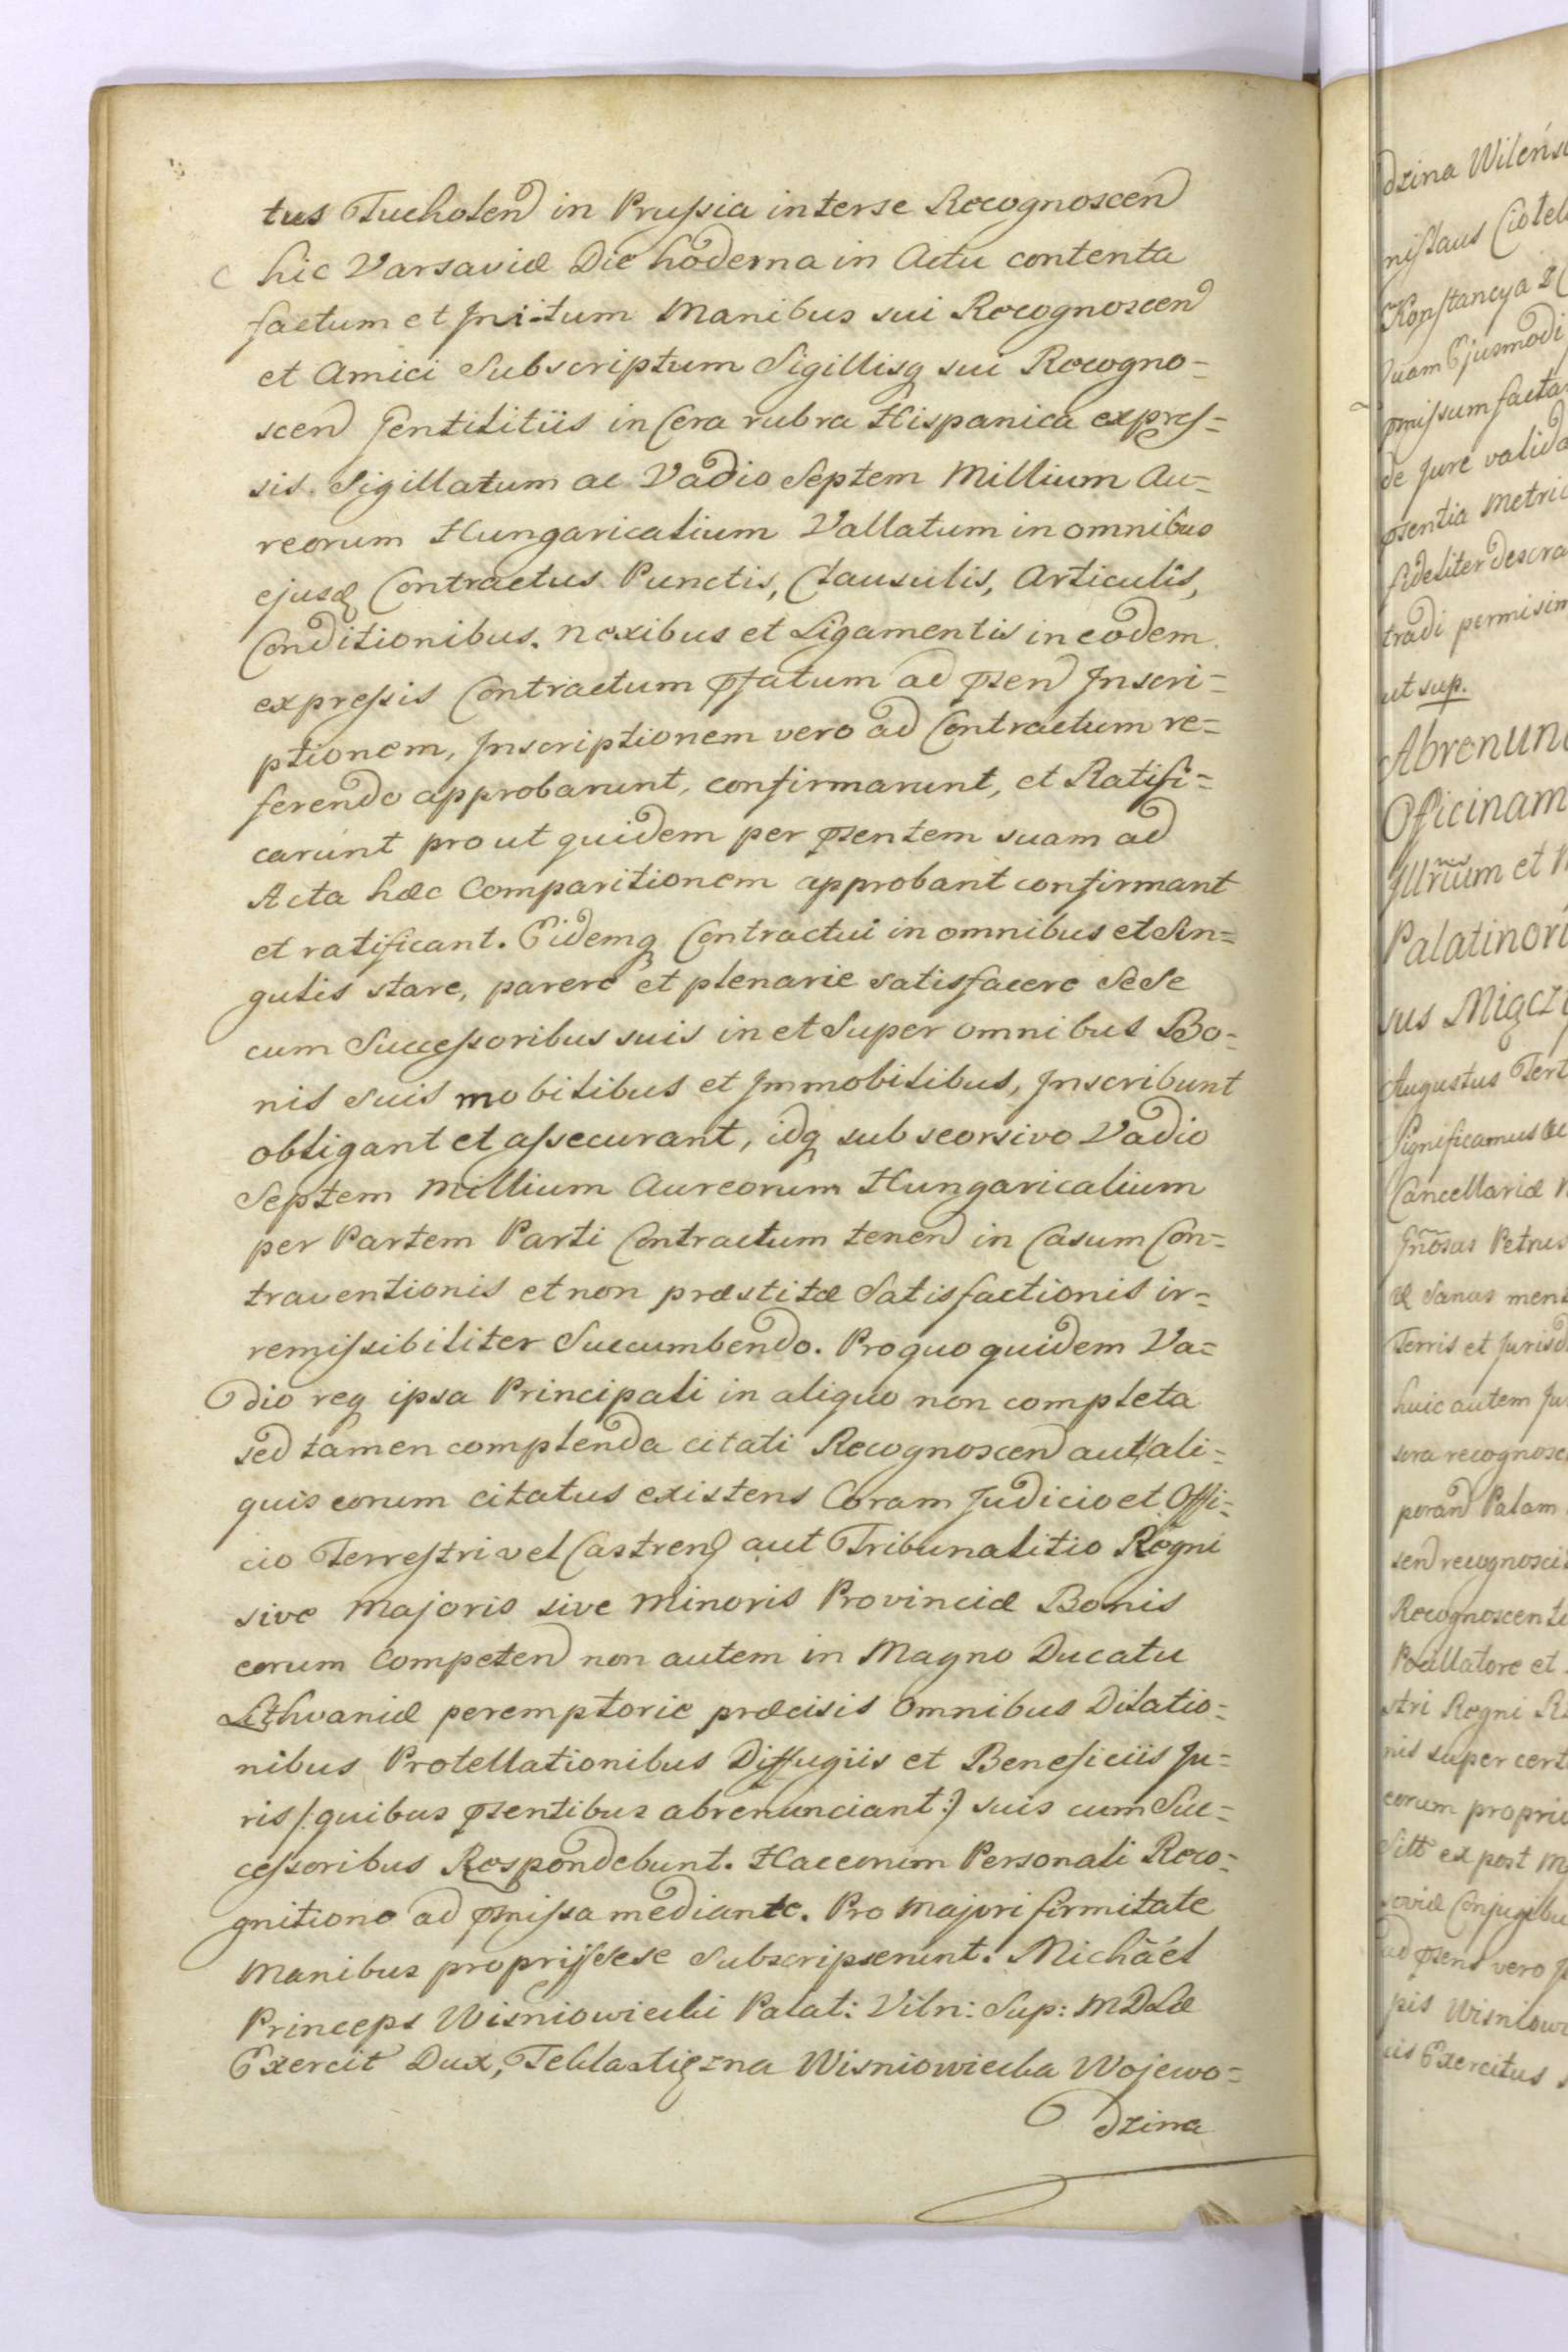 tus Tucholen in Prussia interse Recognoscen
hic Varsaviæ Die hoderna in Actu contenta
factum et Initum Manibus sui Recognoscen
et Amici Subscriptum Sigillisq sui Recogno=
scen Gentilitiis in Cera rubra Hispanica expres=
sis. Sigillatum ac Vadio Septem Millium Au=
reorum Hungaricalium Vallatum in omnibus
ejusd Contractus Punctis, Clausulis, Articulis,
Conditionibus, nexibus et Ligamentis in eodem
expressis Contractum pfatum ad psen Inscri=
ptionem, Inscriptionem vero ad Contractum re=
ferendo approbarunt, confirmarunt, et Ratifi=
carunt pro ut quidem per psentem suam ad
Acta hæc Comparitionem approbant confirmant
et ratificant. Eidemq Contractui in omnibus et Sin=
gulis stare, parere et plenarie satisfacere Sese
cum Successoribus suis in et Super omnibus Bo=
nis suis mobilibus et Immobilibus, Inscribunt
obligant et assecurant, idq sub seorsivo Vadio
Septem Millium Aureorum Hungaricalium
per Partem Parti Contractum tenen in Casum Con=
traventionis et non præstitæ Satisfactionis ir=
remissibiliter Succumbendo. Pro quo quidem Va=
dio req ipsa Principali in aliquo non completa
sed tamen complenda citati Recognoscen aut ali=
quis eorum citatus existens Coram Judicio et Offi=
cio Terrestri vel Castren aut Tribunalitio Regni
sive Majoris sive Minoris Provinciæ Bonis
eorum Competen non autem in Magno Ducatu
Lithvaniæ peremptorie præcisis Omnibus Dilatio=
nibus Protellationibus Diffugiis et Beneficiis Ju=
ris /: quibus psentibus abrenunciant :/ suis cum Suc=
cessoribus Respondebunt. Hac eorum Personali Reco=
gnitione ad pmissa mediante. Pro Majori firmitate
Manibus proprijs sese Subscripserunt. Michaël
Princeps Wisniowiecki Palat: Viln: Sup: MDLæ
Exercit Dux, Tekla Xiężna Wisniowiecka Wojewo=
dzina
dzina Wileńs
nislaus Ciotel
Konstancya
Quam Ejusmodi
pmissum facta
de Jure valida
psentia Metric
fideliter descra
tradi permisim
ut sup.
Abrenun
Officinam
Illrium et
Palatinor
sus Miącz
Augustus Tert
Significamus
Cancellariæ
Gnosus Petrus
æ Sanus ment
Terris et Jurisd
huic autem Ju
sera recognosc
peran Palam
sen recognosci
Recognoscenti
Pocillatore et
stri Regni
nis super cert
eorum proprie
Sitt ex post
soviæ Conjugibu
ad psens vero
pis Wisniow
is Exercitus